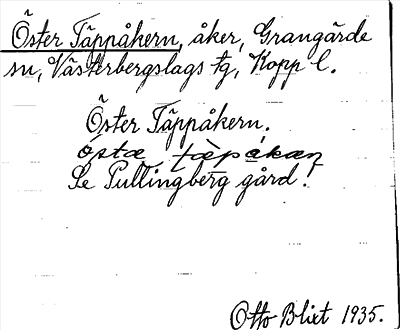 Öster Täppåkern, åker, Grangärde
sn, Västerbergslags tg, Kopp l.
Öster Täppåkern.
östæ tæpåkæɳ
Se Pullingberg gård.
Otto Blixt 1935.